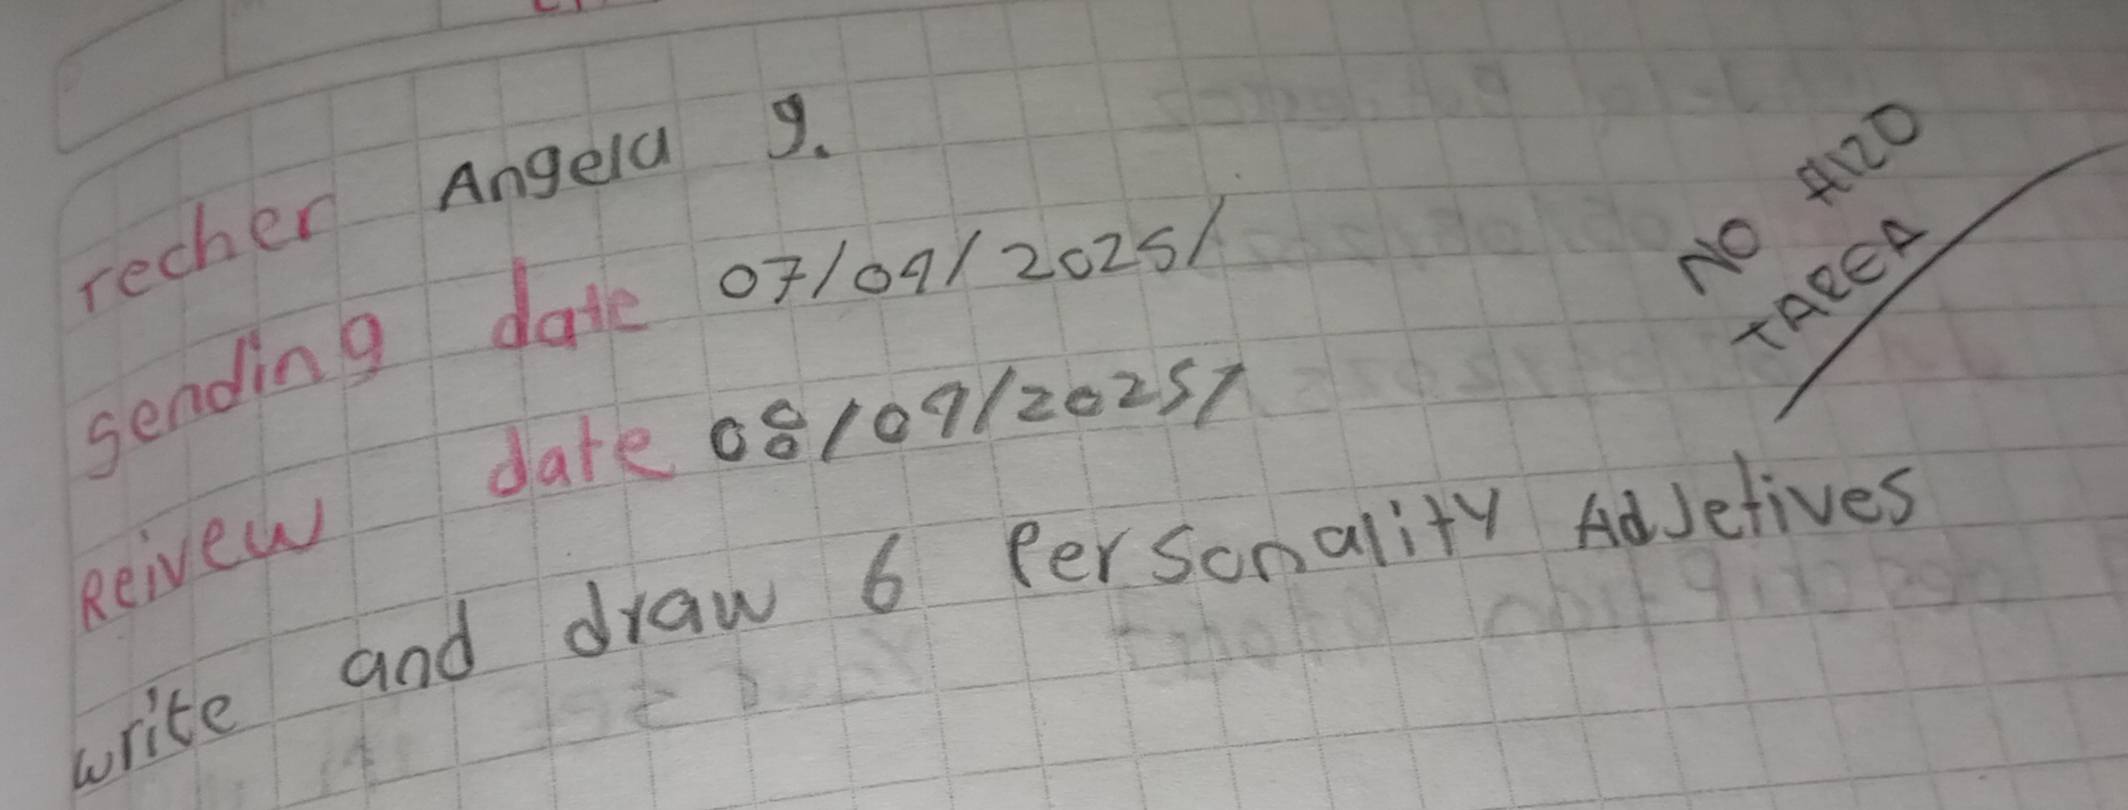 recher Angela g.
sending date 07/09/2025/
Reivew date 08/09/2025/
NO HIZO
TAREA
write and draw 6 Personality AdJetives